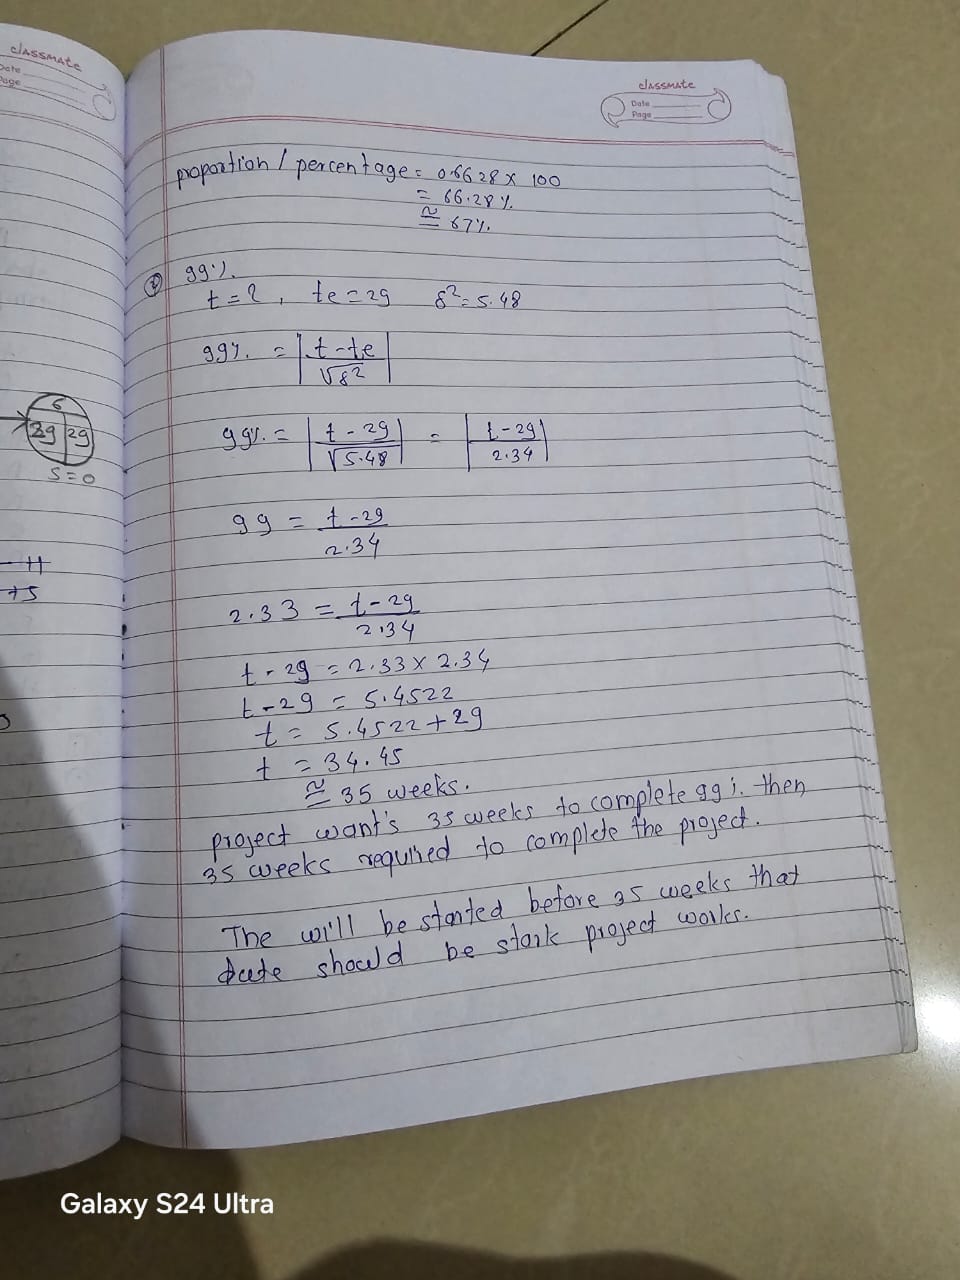 classmate
Date
Page
classmate
Date
Page
proportion / percentage = 0.6628 × 100
= 66.28 %.
≅ 67%.
99%.
t = ?, te = 29 δ² = 5.48
99%. = | t - te / √δ² |
99%. = | t - 29 / √5.48 | = | t - 29 / 2.34 |
99 = t - 29 / 2.34
2.33 = t - 29 / 2.34
t - 29 = 2.33 × 2.34
t - 29 = 5.4522
t = 5.4522 + 29
t = 34.45
≅ 35 weeks.
project want's 35 weeks to complete 99 %. then
35 weeks required to complete the project.
The will be started before 35 weeks that
date should be stark project works.
6
29
S = 0
- 11
+ 5
Galaxy S24 Ultra